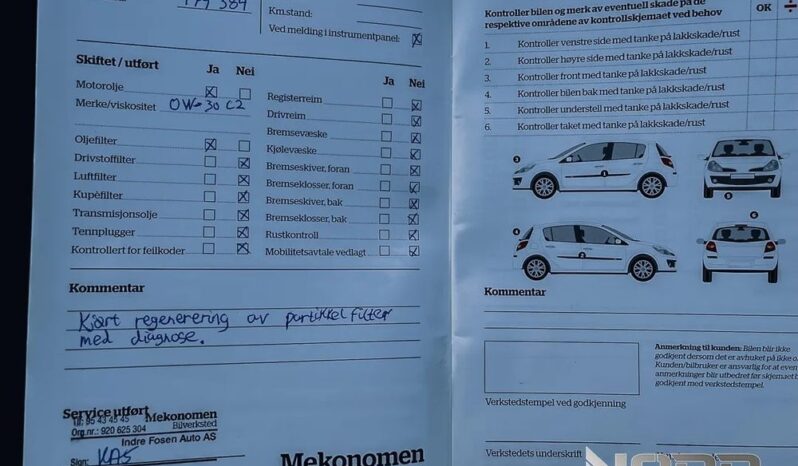 Km.stand:
Ved melding i instrumentpanel:
Skiftet / utført
Ja
Nei
Motorolje
Merke/viskositet OW-30 C2
Oljefilter
Drivstoffilter
Luftfilter
Kupéfilter
Transmisjonsolje
Tennplugger
Kontrollert for feilkoder
Ja
Nei
Registerreim
Drivreim
Bremsevæske
Kjølevæske
Bremseskiver, foran
Bremseklosser, foran
Bremseskiver, bak
Bremseklosser, bak
Rustkontroll
Mobilitetsavtale vedlagt
Kommentar
Kjørt regenerering av partikkelfilter
med diagnose.
Service utført
Mekonomen
Bilverksted
Org.nr.: 920 625 304
Indre Fosen Auto AS
Sign: KAS
Mekonomen
Kontroller bilen og merk av eventuell skade på de
respektive områdene av kontrollskjemaet ved behov
OK
1. Kontroller venstre side med tanke på lakkskade/rust
2. Kontroller høyre side med tanke på lakkskade/rust
3. Kontroller front med tanke på lakkskade/rust
4. Kontroller bilen bak med tanke på lakkskade/rust
5. Kontroller understell med tanke på lakkskade/rust
6. Kontroller taket med tanke på lakkskade/rust
Kommentar
Anmerkning til kunden: Bilen blir ikke
godkjent dersom det er avhuket på ikke
Kunden/bilbruker er ansvarlig for at
anmerkninger blir utbedret før skjemaet
godkjent med verkstedstempel.
Verkstedstempel ved godkjenning
Verkstedets underskrift